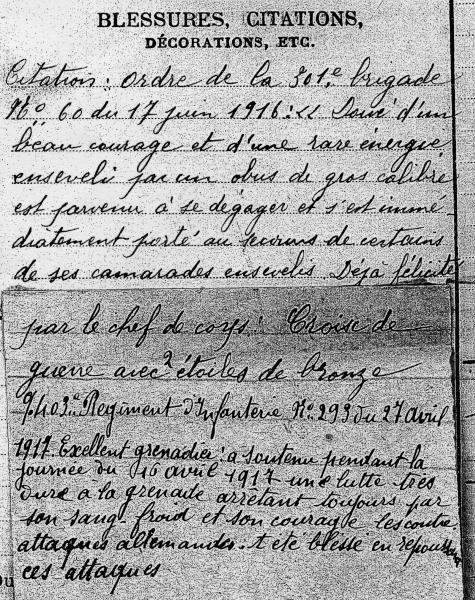 BLESSURES, CITATIONS,
DÉCORATIONS, ETC.
Citation : ordre de la 301e brigade
No 60 du 17 juin 1916 : << Doué d'un
beau courage et d'une rare énergie,
enseveli par un obus de gros calibre
est parvenu à se dégager et s'est immé-
diatement porté au secours de certains
de ses camarades ensevelis. Déjà félicité
par le chef de corps. Croix de
guerre avec 2 étoiles de bronze
403e Régiment d'Infanterie No 293 du 27 avril
1917 Exellent grenadier : a soutenu pendant la
journée du 16 avril 1917 une lutte très
dure à la grenade arrêtant toujours par
son sang-froid et son courage les contre
attaques allemandes. A été blessé en repoussant
ces attaques